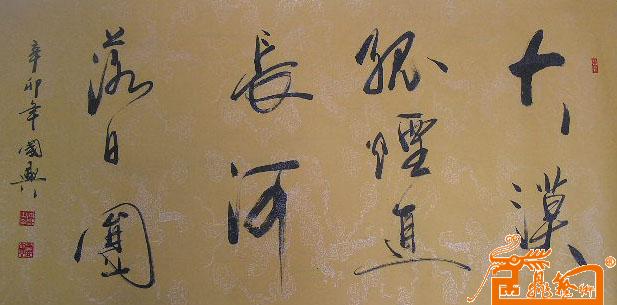 大漠
孤煙直
長河
落日圓
辛卯年國興